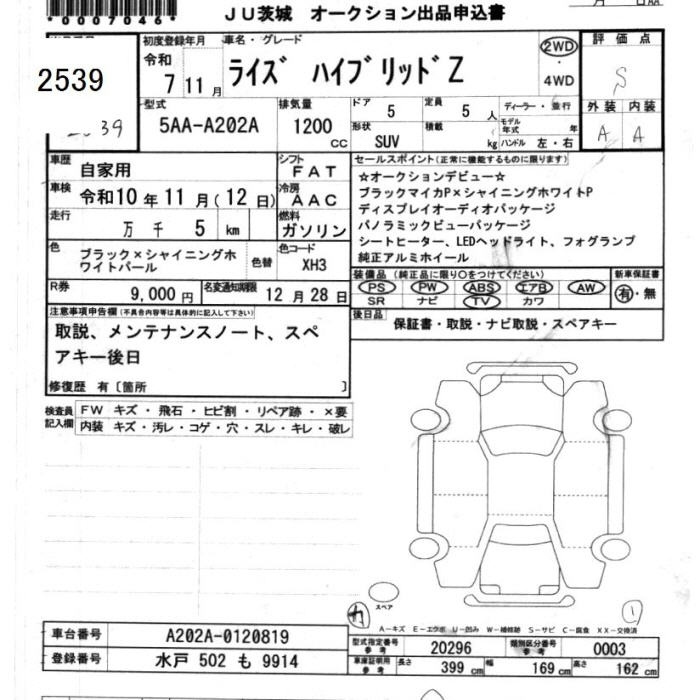 *0007046*
JU茨城 オークション出品申込書
2539
初度登録年月
令和
7 11月
車名・グレード
ライズ ハイブリッドZ
2WD
・
4WD
評価点
S
外装 内装
A A
型式
5AA-A202A
排気量
1200
CC
ドア
5
定員
5人
形状
SUV
積載
kg
ディーラー・並行
モデル年式 年
ハンドル 左・右
車歴
自家用
シフト
FAT
車検
令和10年11月(12日)
冷房
AAC
走行
万 千 5 km
燃料
ガソリン
色
ブラック×シャイニングホワイトパール
色替
色コード
XH3
R券
9,000円
名変通知期限
12月28日
セールスポイント(正常に機能するものに限ります)
☆オークションデビュー☆
ブラックマイカP×シャイニングホワイトP
ディスプレイオーディオパッケージ
パノラミックビューパッケージ
シートヒーター、LEDヘッドライト、フォグランプ
純正アルミホイール
装備品(純正品に限り○をつけてください)
PS PW ABS エアB AW
SR ナビ TV カワ
新車保証書
有・無
後日品
保証書・取説・ナビ取説・スペアキー
注意事項申告欄(不具合内容等は具体的に記入して下さい)
取説、メンテナンスノート、スペ
アキー後日
修復歴 有〔箇所 〕
検査員
記入欄
FW キズ・飛石・ヒビ割・リペア跡・×要
内装 キズ・汚レ・コゲ・穴・スレ・キレ・破レ
スペア
1
A-キズ E-エクボ U-凹み W-補修跡 S-サビ C-腐食 XX-交換済
車台番号
A202A-0120819
登録番号
水戸 502 も 9914
型式指定番号
参考
20296
類別区分番号
参考
0003
車庫証明用
参考
長さ
399 cm
幅
169 cm
高さ
162 cm